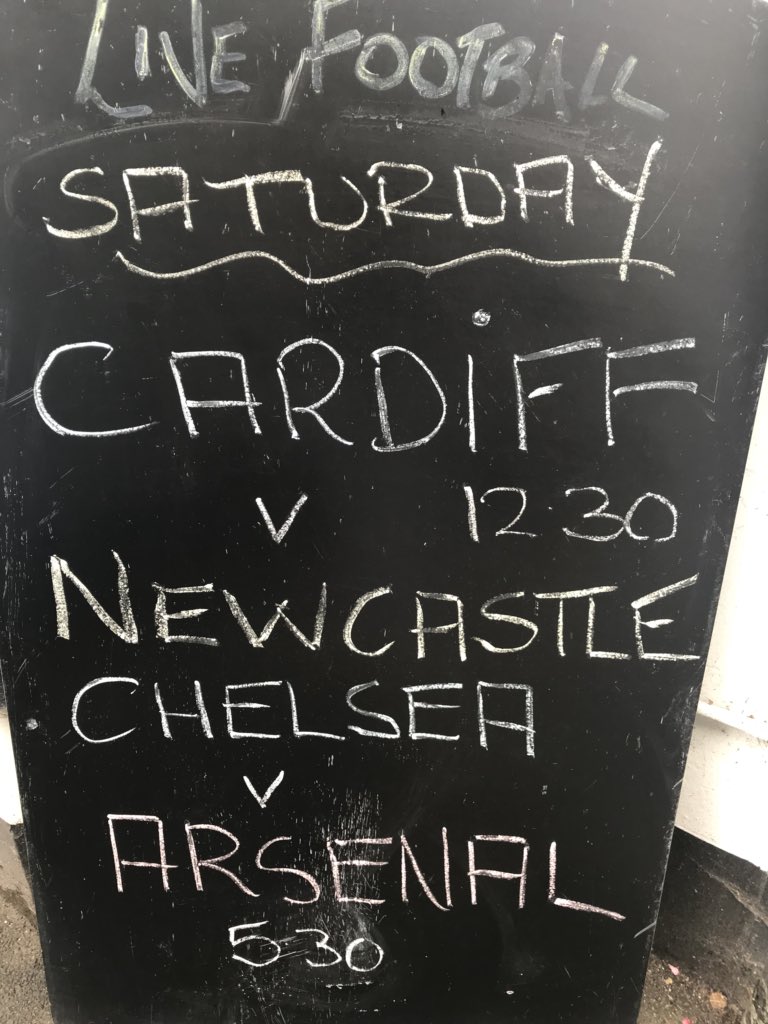 LIVE FOOTBALL
SATURDAY
CARDiFF
V 12 30
NEWCASTLE
CHELSEA
V
ARSENAL
5 30